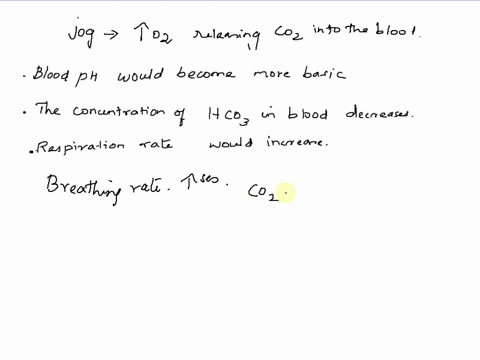 jog → ↑O2 releasing CO2 into the blood.
. Blood pH would become more basic
. The concentration of HCO3 in blood decreases.
. Respiration rate would increase.
Breathing rate. ↑ses. CO2.